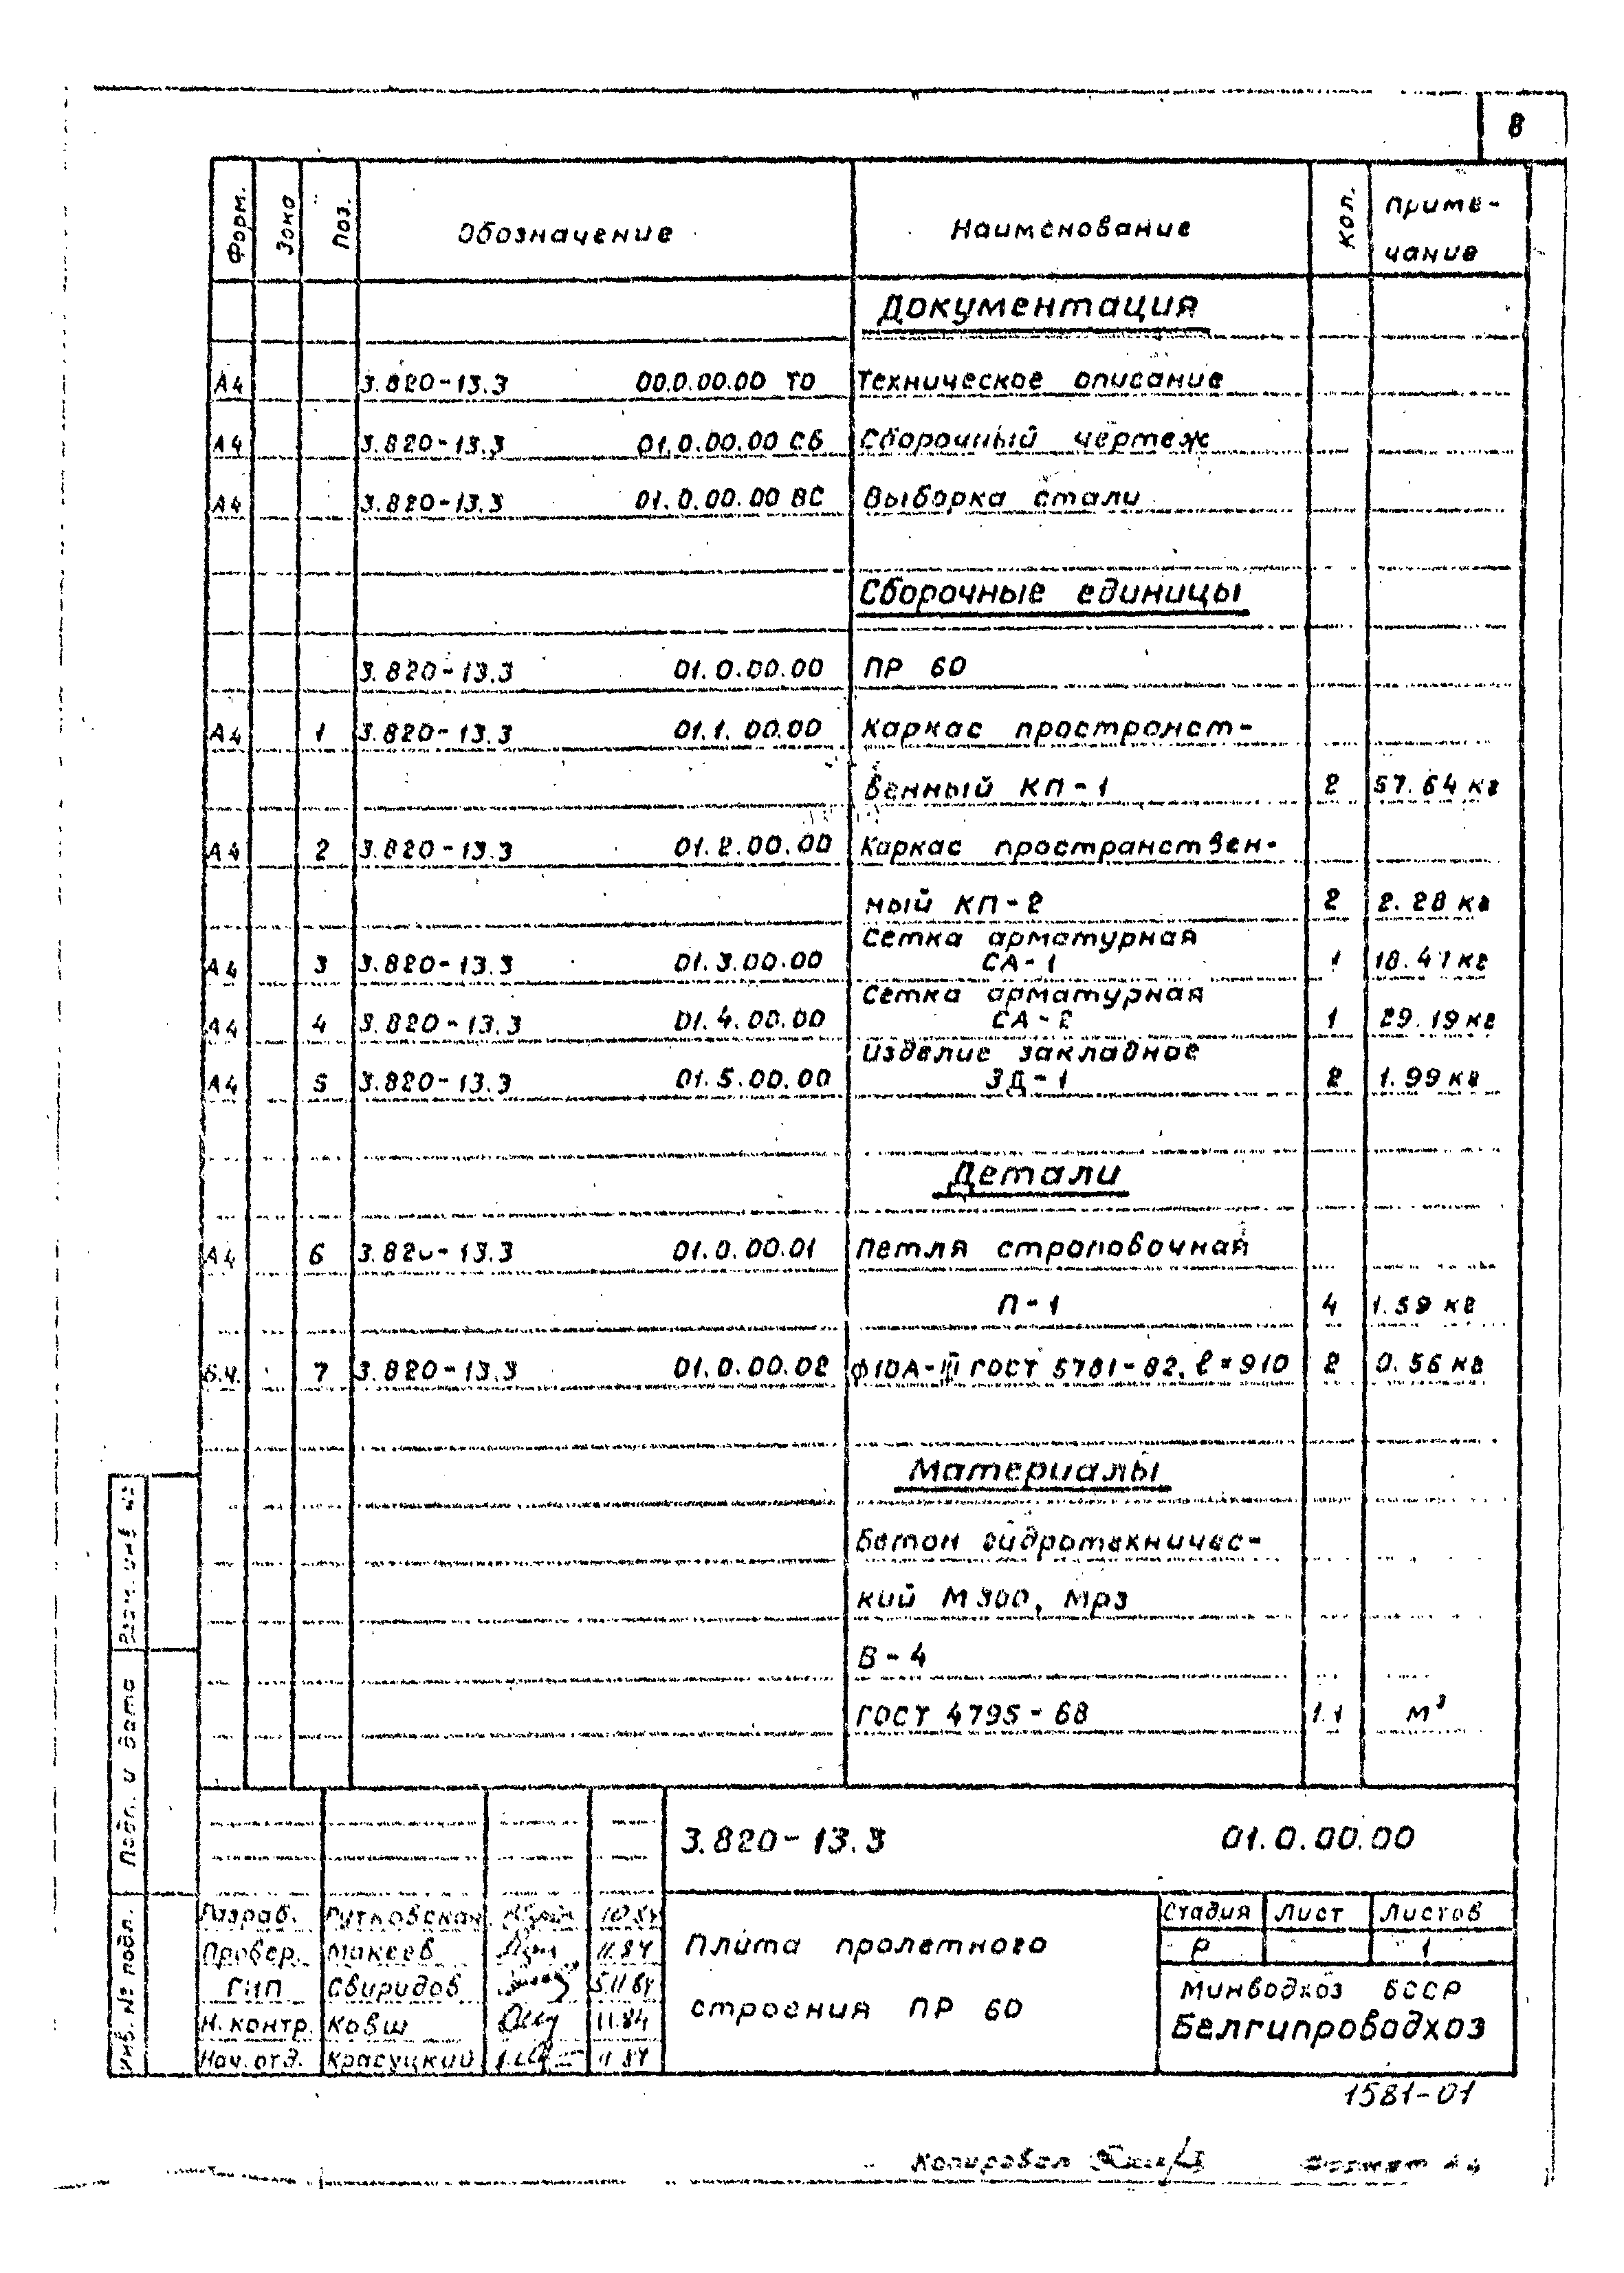 8
Форм. Зона Поз. Обозначение Наименование Кол. Приме-
чание
Документация
А4 3.820-13.3 00.0.00.00 ТО Техническое описание
А4 3.820-13.3 01.0.00.00 СБ Сборочный чертеж
А4 3.820-13.3 01.0.00.00 ВС Выборка стали
Сборочные единицы
3.820-13.3 01.0.00.00 ПР 60
А4 1 3.820-13.3 01.1.00.00 Каркас пространст-
венный КП-1 2 57.64 кг
А4 2 3.820-13.3 01.2.00.00 Каркас пространствен-
ный КП-2 2 2.28 кг
Сетка арматурная
А4 3 3.820-13.3 01.3.00.00 СА-1 1 18.47 кг
Сетка арматурная
А4 4 3.820-13.3 01.4.00.00 СА-2 1 29.19 кг
Изделие закладное
А4 5 3.820-13.3 01.5.00.00 ЗД-1 2 1.99 кг
Детали
А4 6 3.820-13.3 01.0.00.01 Петля строповочная
П-1 4 1.59 кг
Б.Ч. 7 3.820-13.3 01.0.00.02 ф10А-III ГОСТ 5781-82, ℓ=910 2 0.56 кг
Материалы
Бетон гидротехничес-
кий М300, Мрз
В-4
ГОСТ 4795-68 1.1 м³
Взам. инв. №
Подп. и дата
Инв. № подл.
3.820-13.3 01.0.00.00
Разраб. Рутковская 10.84
Провер. Макеев 11.84
ГИП Свиридов 5.11.84
Н. контр. Ковш 11.84
Нач. отд. Красуцкий 11.84
Плита пролетного
строения ПР 60
Стадия Лист Листов
Р 1
Минводхоз БССР
Белгипроводхоз
1581-01
Копировал Формат А4